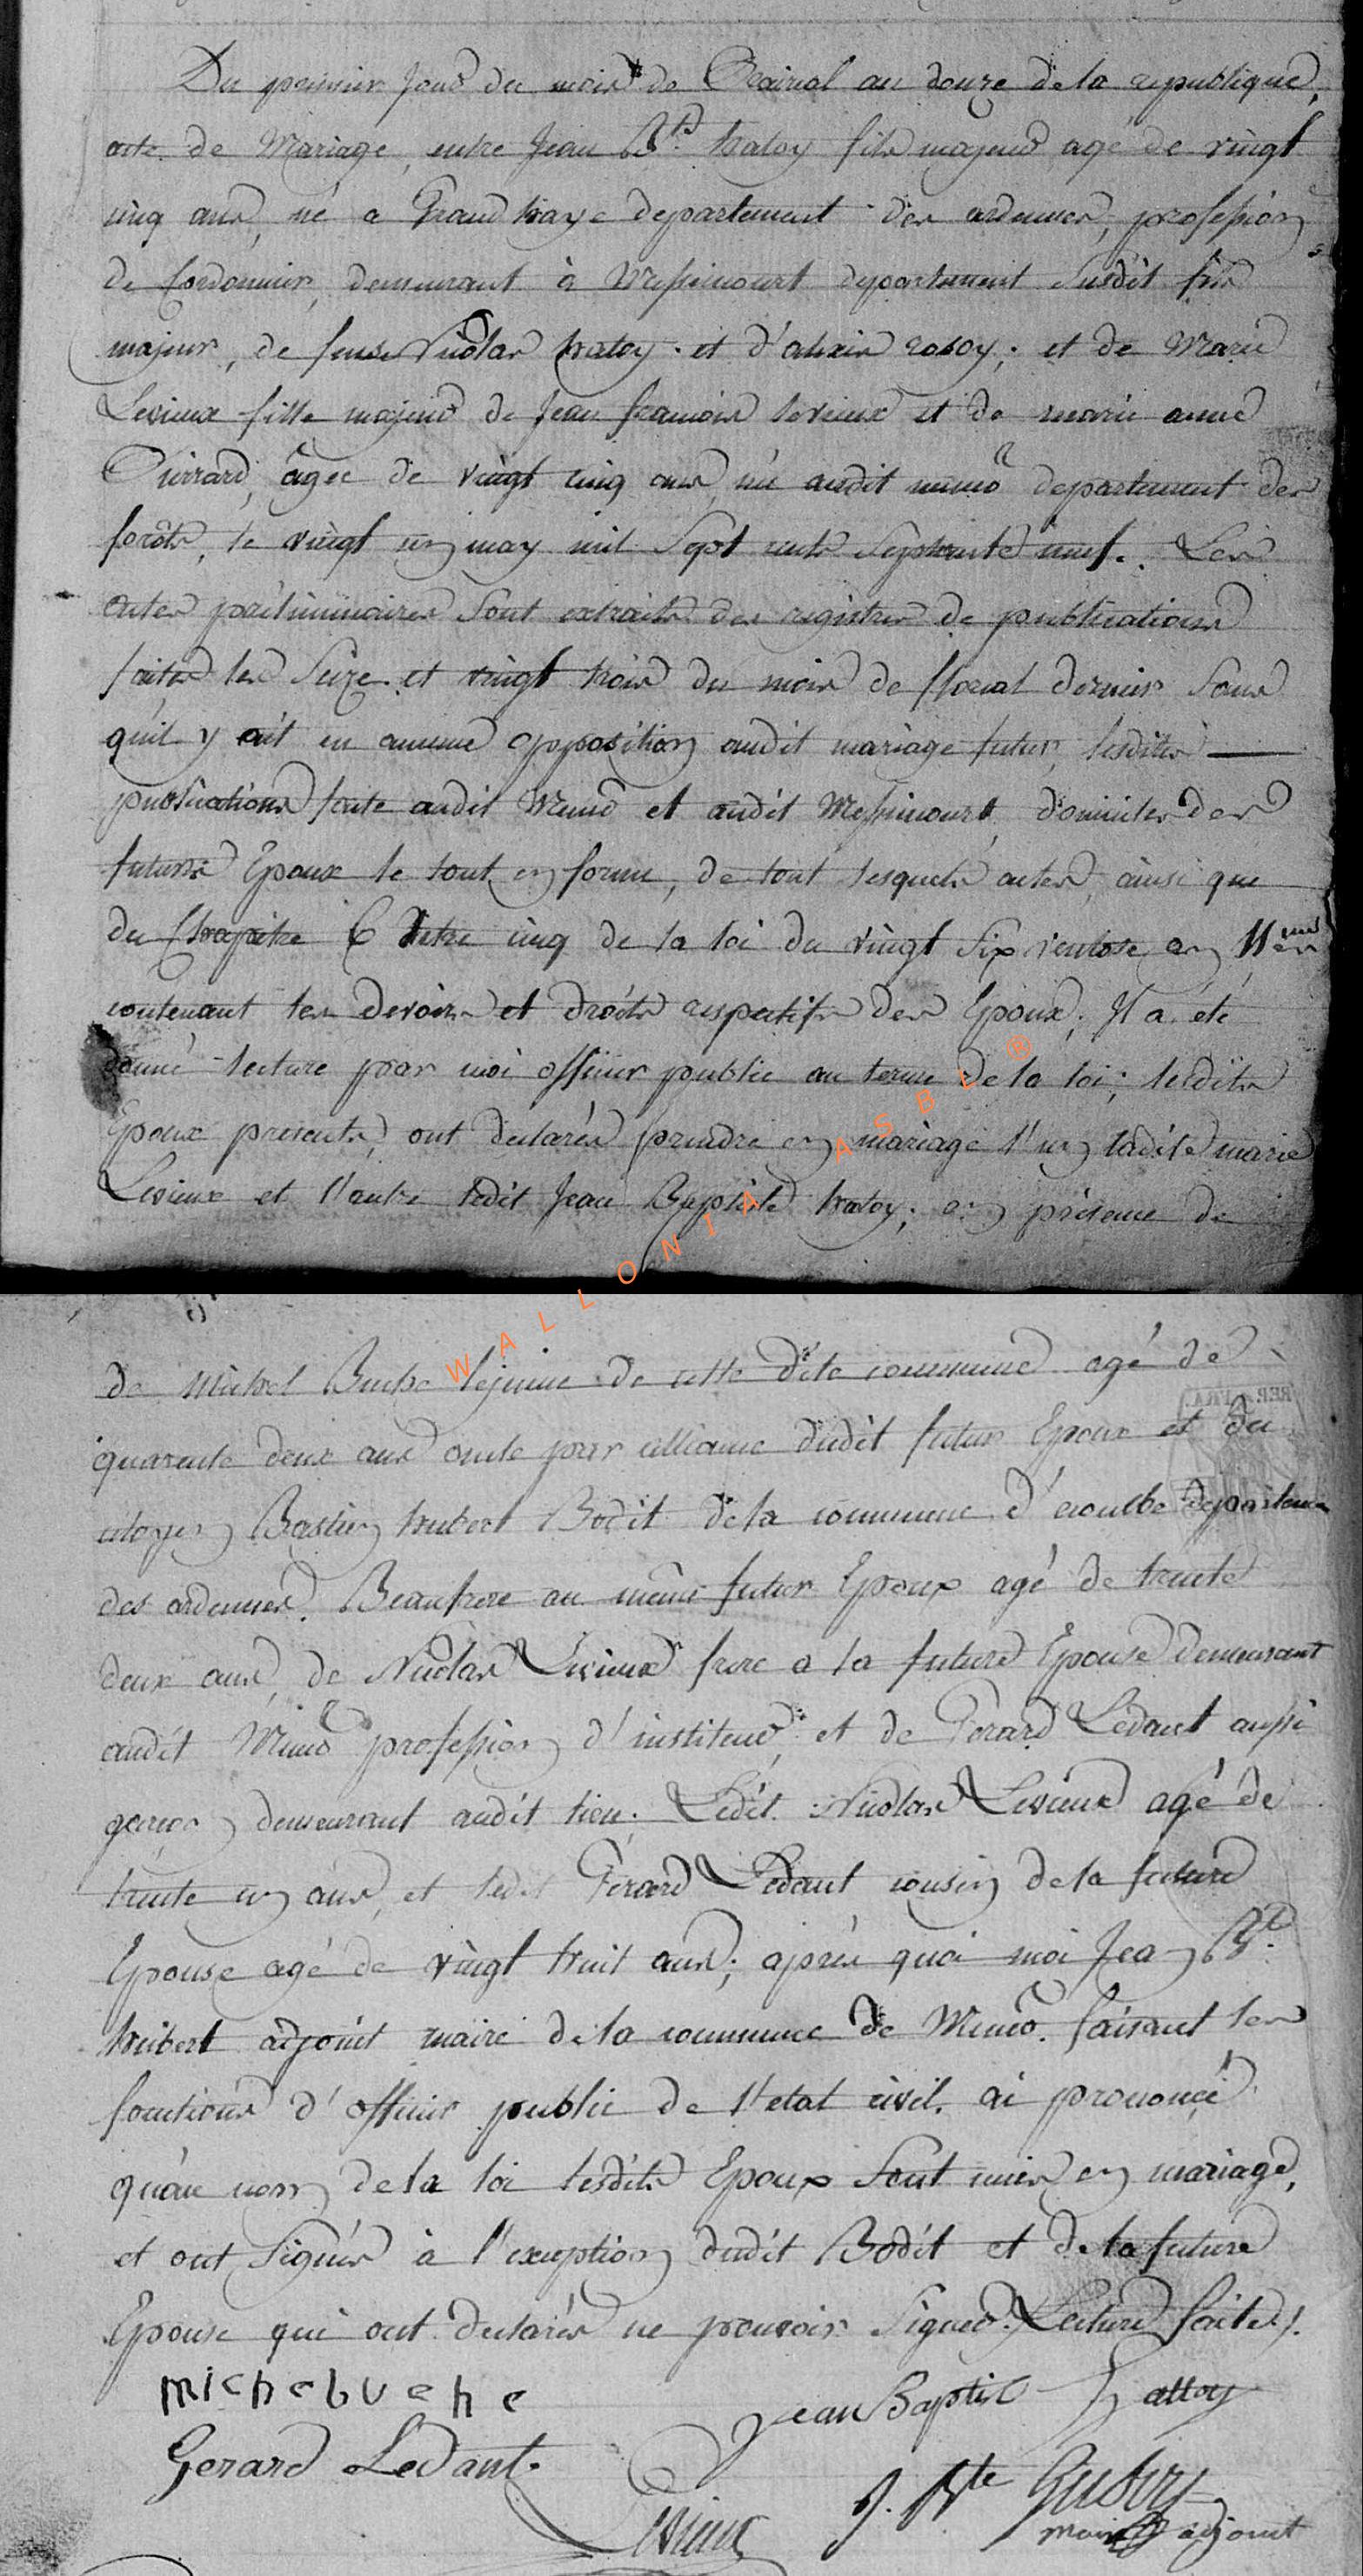 Du premier Jour du mois de Prairial an douze de la republique,
acte de Mariage, entre Jean Bte hatoy fils majeur agé de vingt
cinq ans, né a Grand haye departement des ardennes, profession
de Cordonnier, demeurant à Messincourt departement susdit fils
majeur, de feuse Nicolas hatoy. et d'alixis rosoy; et de Marie
Levieux fille majeur de Jean francois levieux et de marie anne
Pierrard, âgée de vingt cinq ans, né audit muno departement des
forêts, le vingt un may mil Sept cents Septante neuf. Les
actes préliminaires Sont extraits des registres de publications
faites les Seize et vingt trois du mois de floreal dernier Sans
quil y ait eu aucune opposition audit mariage futur, lesdites
publications faite audit Muno et audit Messincourt, domiciles des
futurs Epoux le tout en forme, de tout lesquels actes, ainsi que
du Chapitre 6 titre cinq de la loi du vingt Six ventose an 11eme
contenant les devoirs et droits respectifs des Epoux, Il a été
donné lecture par moi officier public au terme de la loi; lesdits
Epoux présents, ont declarés prendre en mariage l'un ladite marie
Levieux et l'autre ledit Jean Baptiste hatoy; en présence de
WALLONIA ASBL ®
de michel Buche lejeune de cette dite commune agé de
quarente deux ans oncle par alliance dudit futur Epoux et du
citoyen Bastien hubert Bodit de la commune d'escombe departemen
des ardennes. Beaufrere au même futur Epoux agé de trente
deux ans, de Nicolas Levieux frere a la future Epouse demeurant
audit Muno profession d'institeur, et de Gerard Ledant aussi
garcon demeurant audit lieu. Ledit Nicolas Levieux agé de
trente un ans, et ledit Gérard Ledant cousin de la future
Epouse agé de vingt huit ans; après quoi moi Jean Bte
hubert adjoint maire de la commune de Muno. faisant les
fonctions d'officier public de l'etat civil. ai prononcé
qu'au nom de la loi lesdits Epoux Sont unies en mariage,
et ont Signés à l'exception dudit Bodit et de la future
Epouse qui ont declarés ne pouvoir Signer. Lecture faite./.
michebuche
Jean Baptist hattoy
Gerard Ledant.
Levieux
J. Bte
maire adjoint